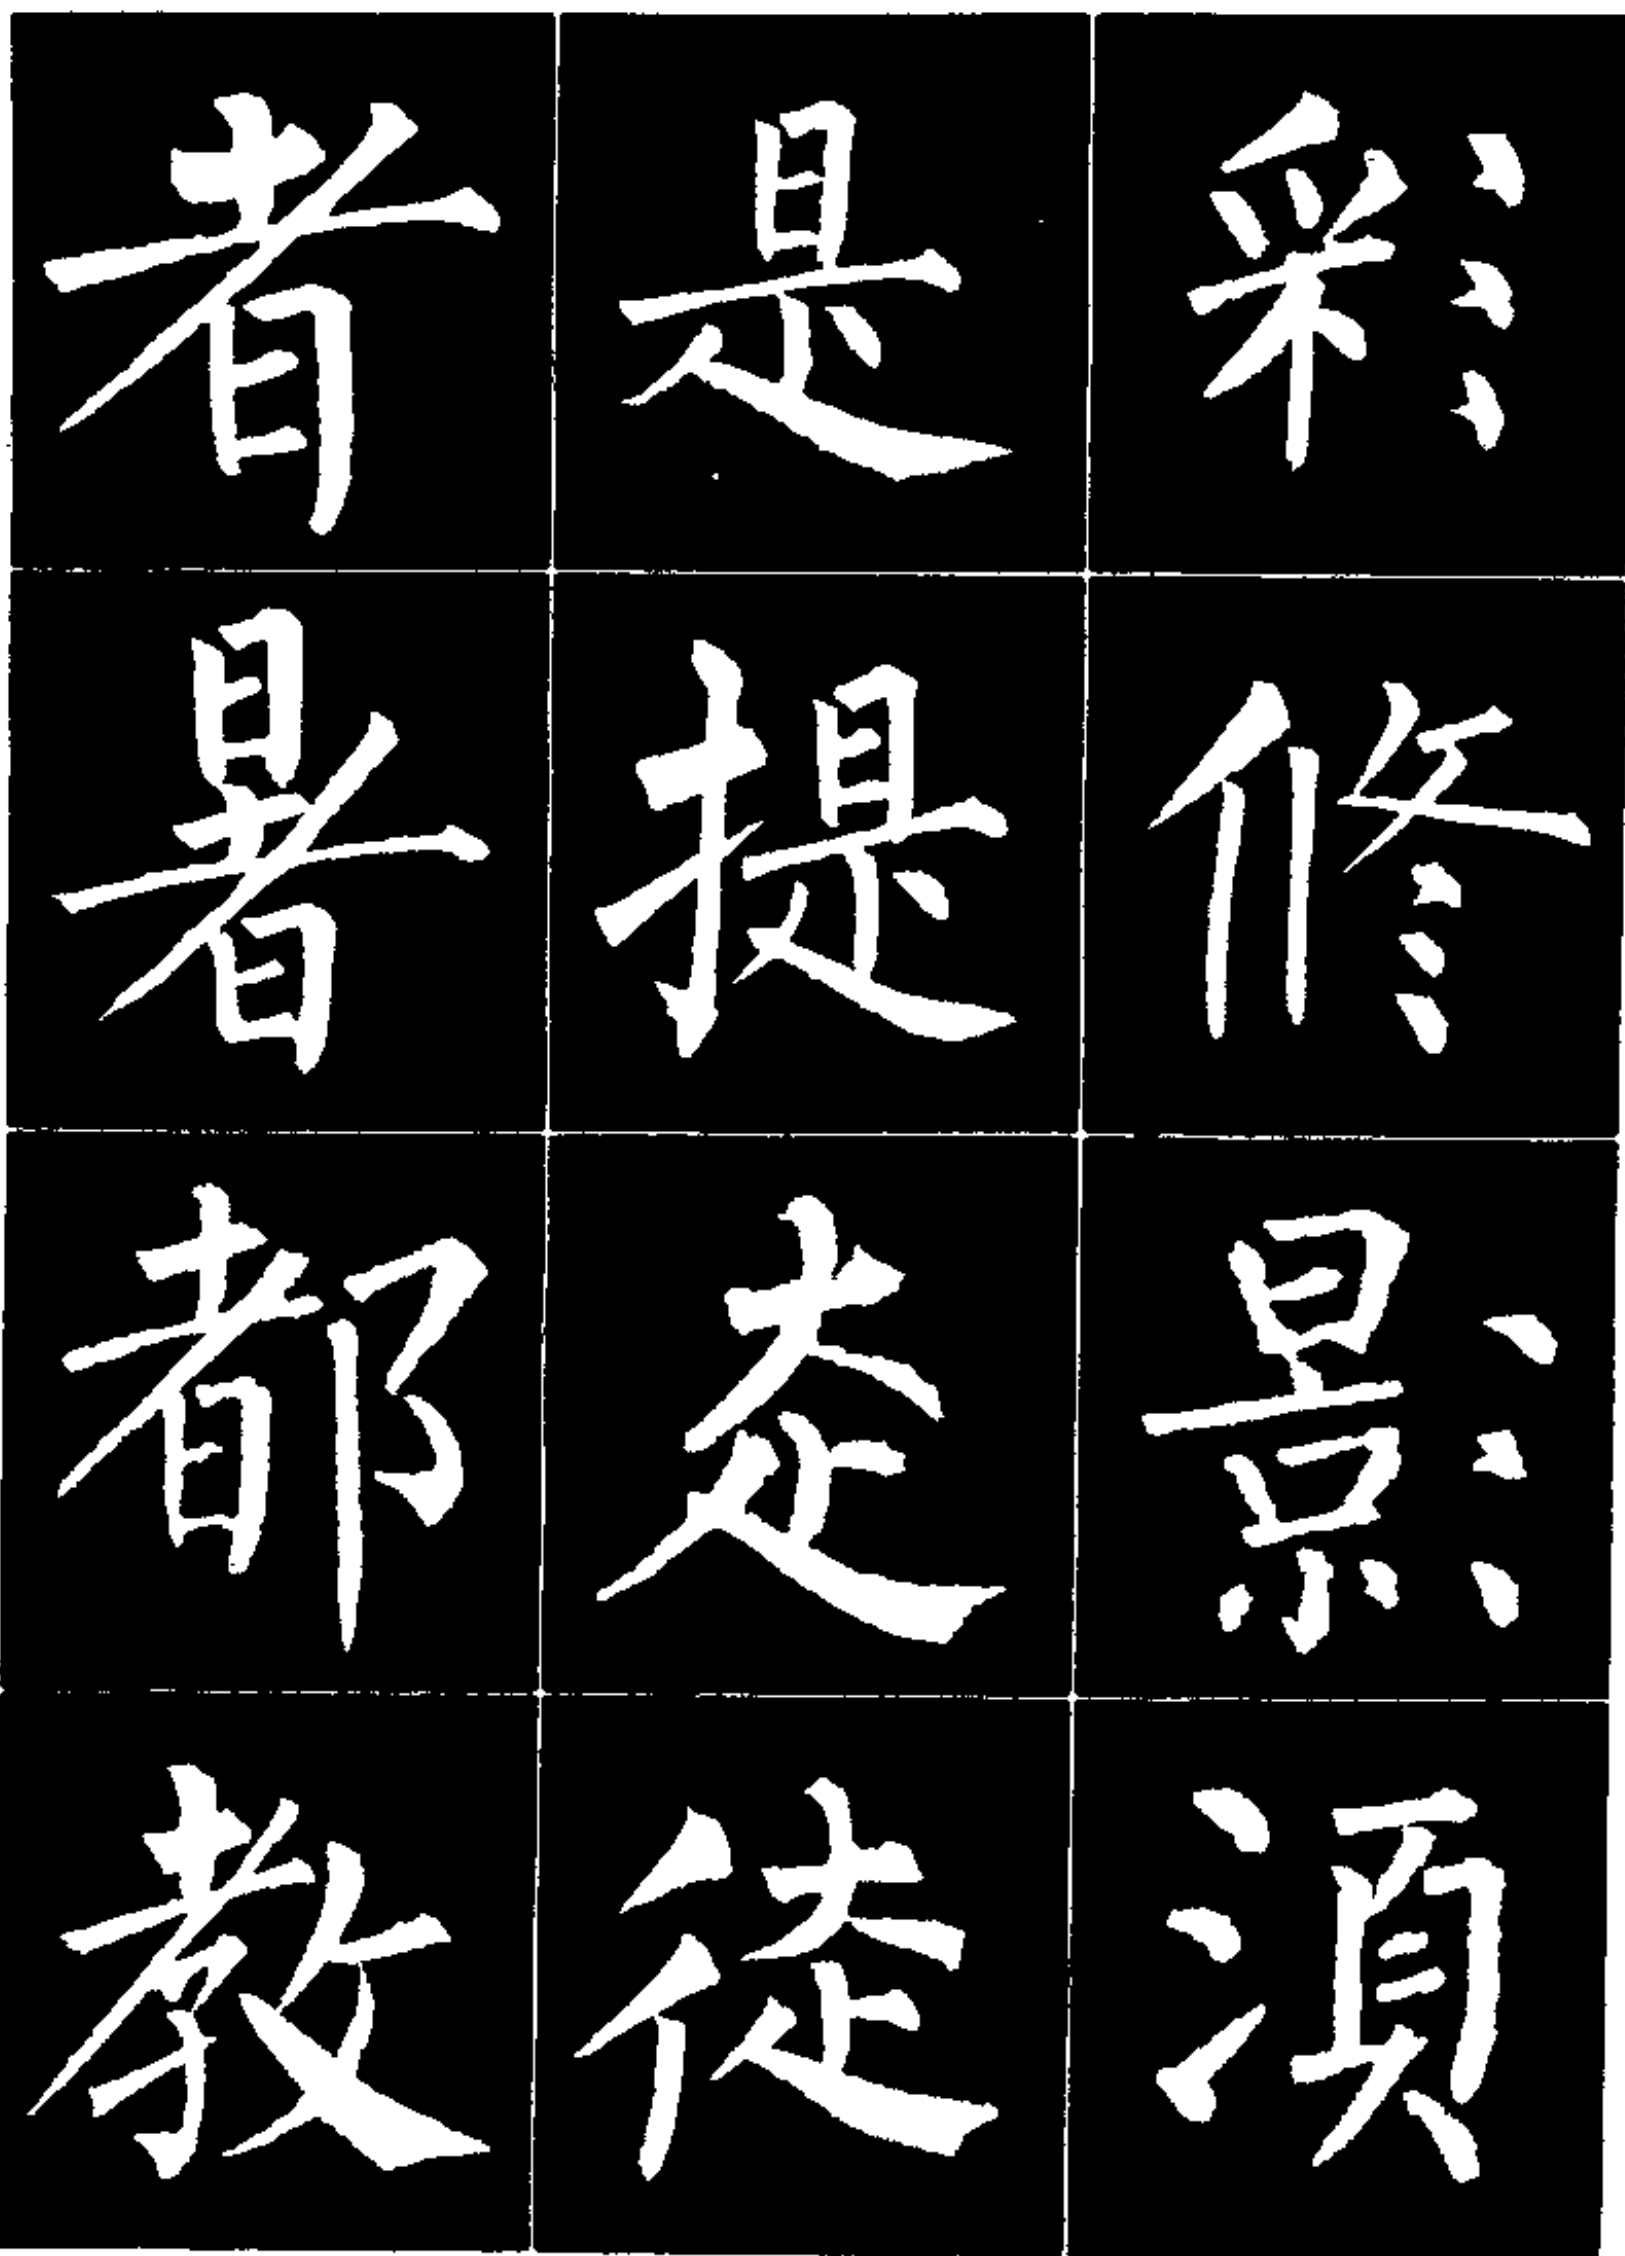 彩修影湏
是提走徒
者暑都教